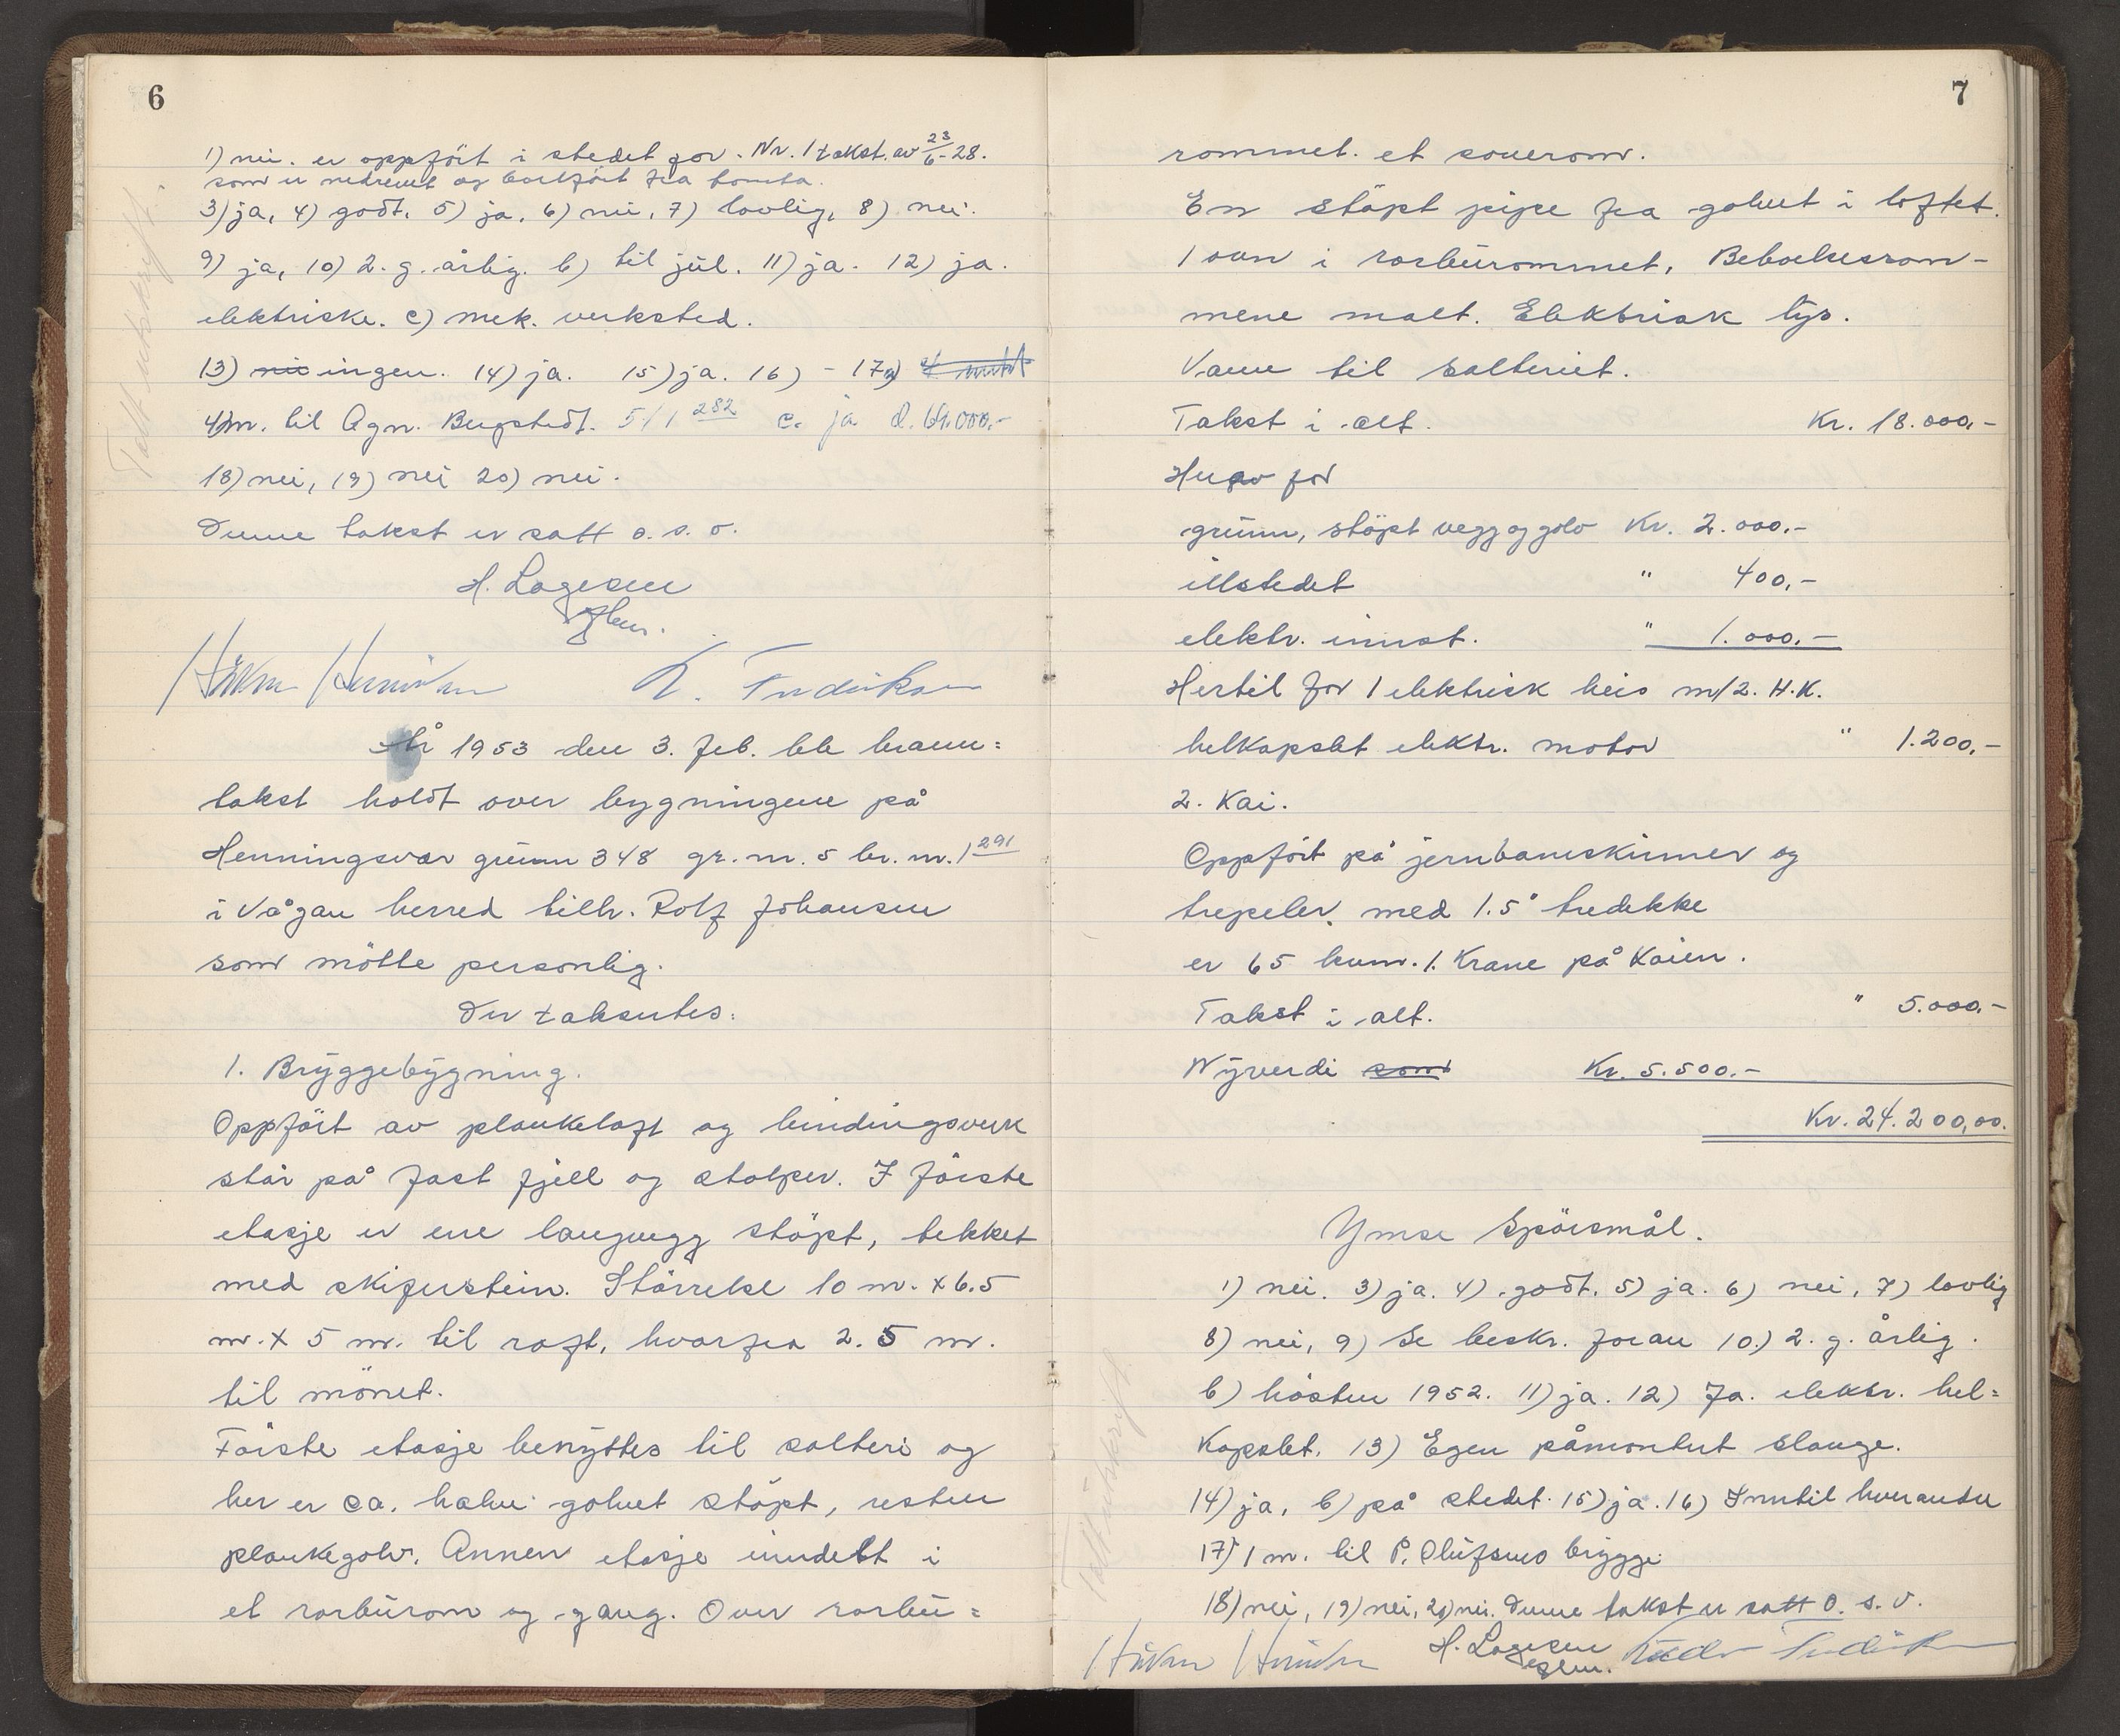 6
1) nei. er oppfört i stedet for. Nr. 1 takst. av 23/6-28.
som er nedrevet og bortfört fra tomta.
3) ja, 4) godt, 5) ja, 6) nei, 7) lovlig, 8) nei.
9) ja, 10) 2. g. årlig. b) til jul. 11) ja. 12) ja.
elektriske. c) mek. verksted.
13) nei ingen. 14) ja. 15) ja. 16) - 17a)
4m. til Agn. Bergstedt. 5/1 282 c. ja d.
18) nei, 19) nei 20) nei.
Denne takst er satt o. s. v.
H. Lagesen
Håkon K. Fredriksen
Tatt utskrift.
År 1953 den 3. feb. ble brann=
takst holdt over bygningene på
Henningsvær grunn 348 gr. nr. 5 br. nr. 1 291
i Vågan herred tilh. Rolf Johansen
som mötte personlig.
Der taksertes:
1. Bryggebygning.
Oppfört av plankelaft og bindingsverk
står på fast fjell og stolper. I förste
etasje er ene langvegg stöpt, tekket
med skiferstein. Störrelse 10 m. x 6.5
m. x 5 m. til raft, hvorfra 2.5 m.
til mönet.
Förste etasje benyttes til salteri og
her er ca. halve golvet stöpt, resten
plankegolv. Annen etasje inndelt i
et rorburom og gang. Over rorbu=
7
rommet. et soverom.
En stöpt pipe fra golvet i loftet.
1 ovn i rorburommet, Beboelsesrom-
mene malt. Elektrisk lys.
Vann til salteriet.
Takst i alt. Kr. 18.000,-
Herav for
grunn, stöpt vegg og golv Kr. 2.000.-
illstedet " 400,-
elektr. innst. " 1.000.-
Hertil for 1 elektrisk heis m/2. H.K.
helkapslet elektr. motor " 1.200,-
2. Kai.
Oppfört på jernbaneskinner og
trepeler. med 1.5" tredekke
er 65 kvm. 1. Krane på Kaien.
Takst i alt. " 5.000,-
Nyverdi som Kr. 5.500.-
Kr. 24.200,00.
Ymse Spörsmål.
1) nei. 3) ja. 4) godt. 5) ja. 6) nei, 7) lovlig
8) nei, 9) Se beskr. foran 10.) 2. g. årlig.
b) hösten 1952. 11) ja. 12) Ja. elektr. hel=
kapslet. 13) Egen påmontert slange.
14) ja, b) på stedet. 15) ja. 16) Inntil hverandre
17) 1 m. til P. Olufsens brygge
18) nei, 19) nei, 20) nei. Denne takst er satt o. s. v.
Håkon H. Lagesen
Tatt utskrift